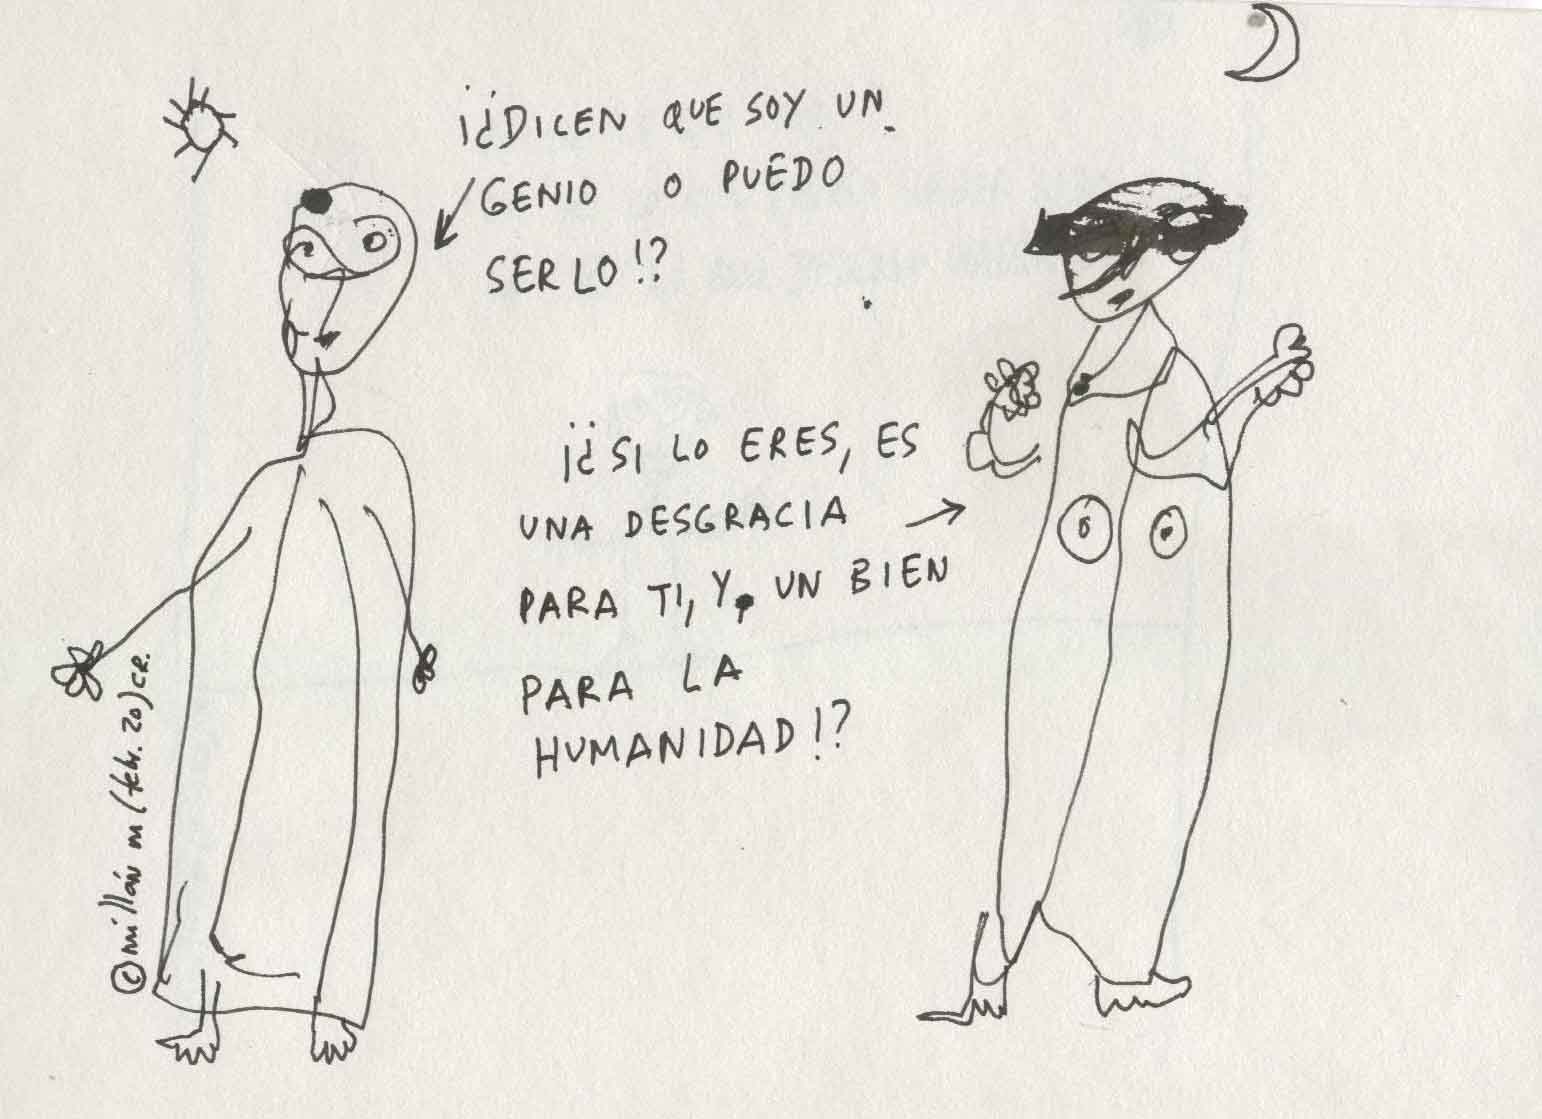 ¡¿DICEN QUE SOY UN
GENIO O PUEDO
SERLO!?
¡¿SI LO ERES, ES
UNA DESGRACIA
PARA TI, Y, UN BIEN
PARA LA
HUMANIDAD!?
©millán m (febr. 20) CR.